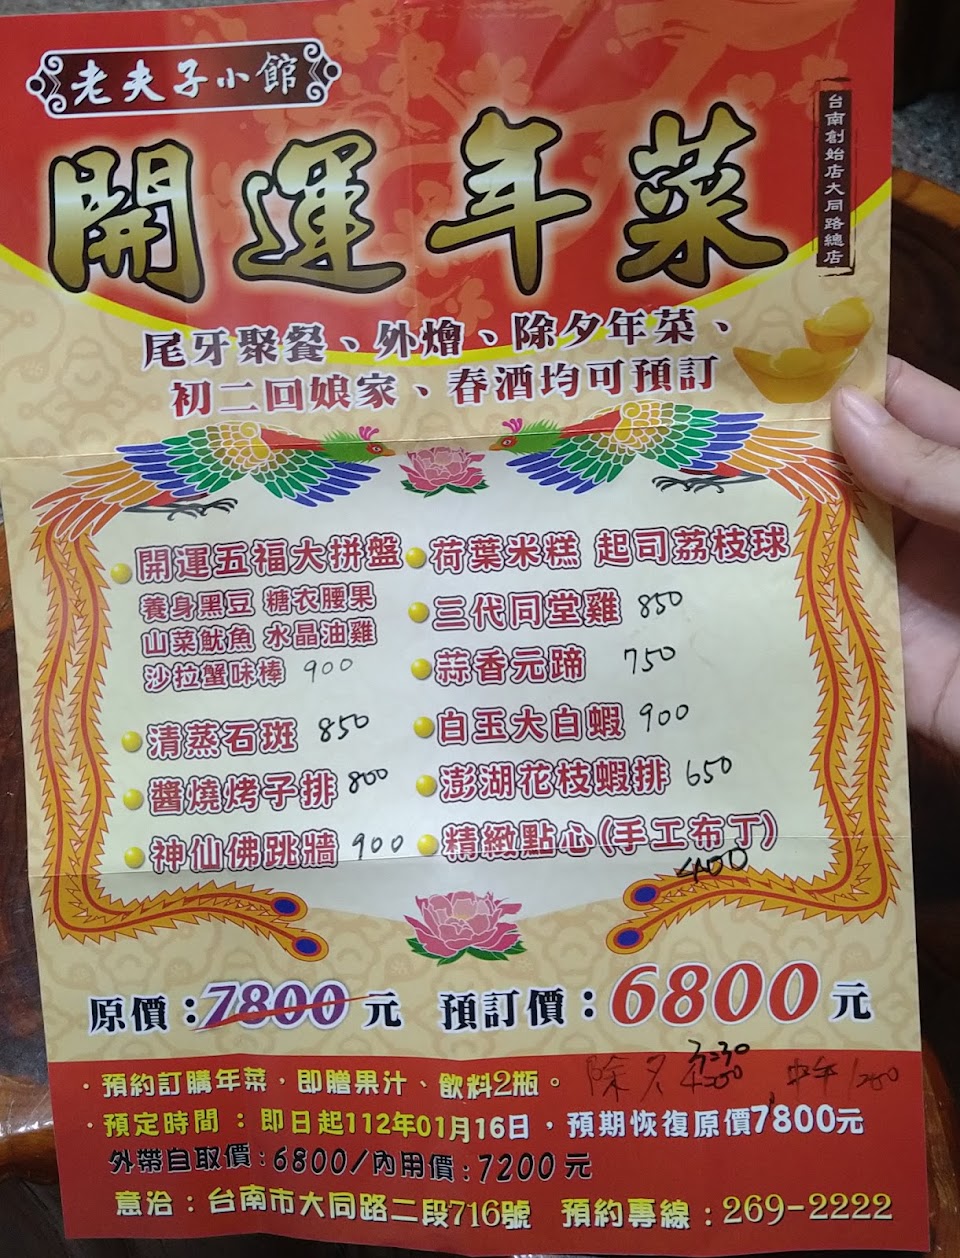 老夫子小館
台南創始店大同路總店
開運年菜
尾牙聚餐、外燴、除夕年菜、
初二回娘家、春酒均可預訂
開運五福大拼盤
養身黑豆 糖衣腰果
山菜魷魚 水晶油雞
沙拉蟹味棒 900
清蒸石斑 850
醬燒烤子排 800
神仙佛跳牆 900
荷葉米糕 起司荔枝球
三代同堂雞 850
蒜香元蹄 750
白玉大白蝦 900
澎湖花枝蝦排 650
精緻點心(手工布丁)
400
原價:7800元 預訂價:6800元
除夕
·預約訂購年菜,即贈果汁、飲料2瓶。
·預定時間:即日起112年01月16日,預期恢復原價7800元
外帶自取價:6800/內用價:7200元
意洽:台南市大同路二段716號 預約專線:269-2222